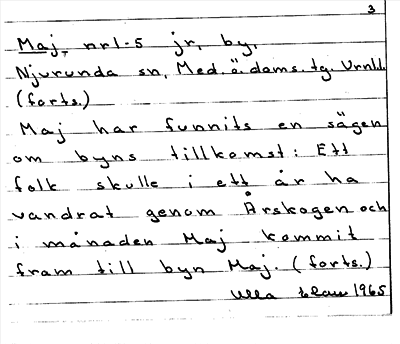 3
Maj, nr 1-5 jr, by,
Njurunda sn, Med. ö. doms. tg. Vrnl.
(forts.)
Maj har funnits en sägen
om byns tillkomst: Ett
folk skulle i ett år ha
vandrat genom Årskogen och
i månaden Maj kommit
fram till byn Maj. (forts.)
Ulla 1965